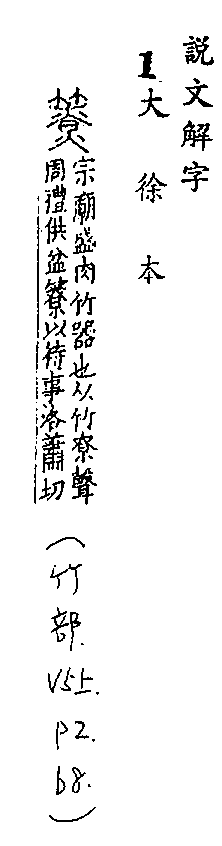 説文解字
1大徐本
簝
宗廟盛肉竹器也从竹尞聲
周禮供盆簝以待事洛蕭切
(竹部. V5上. P2. b8.)